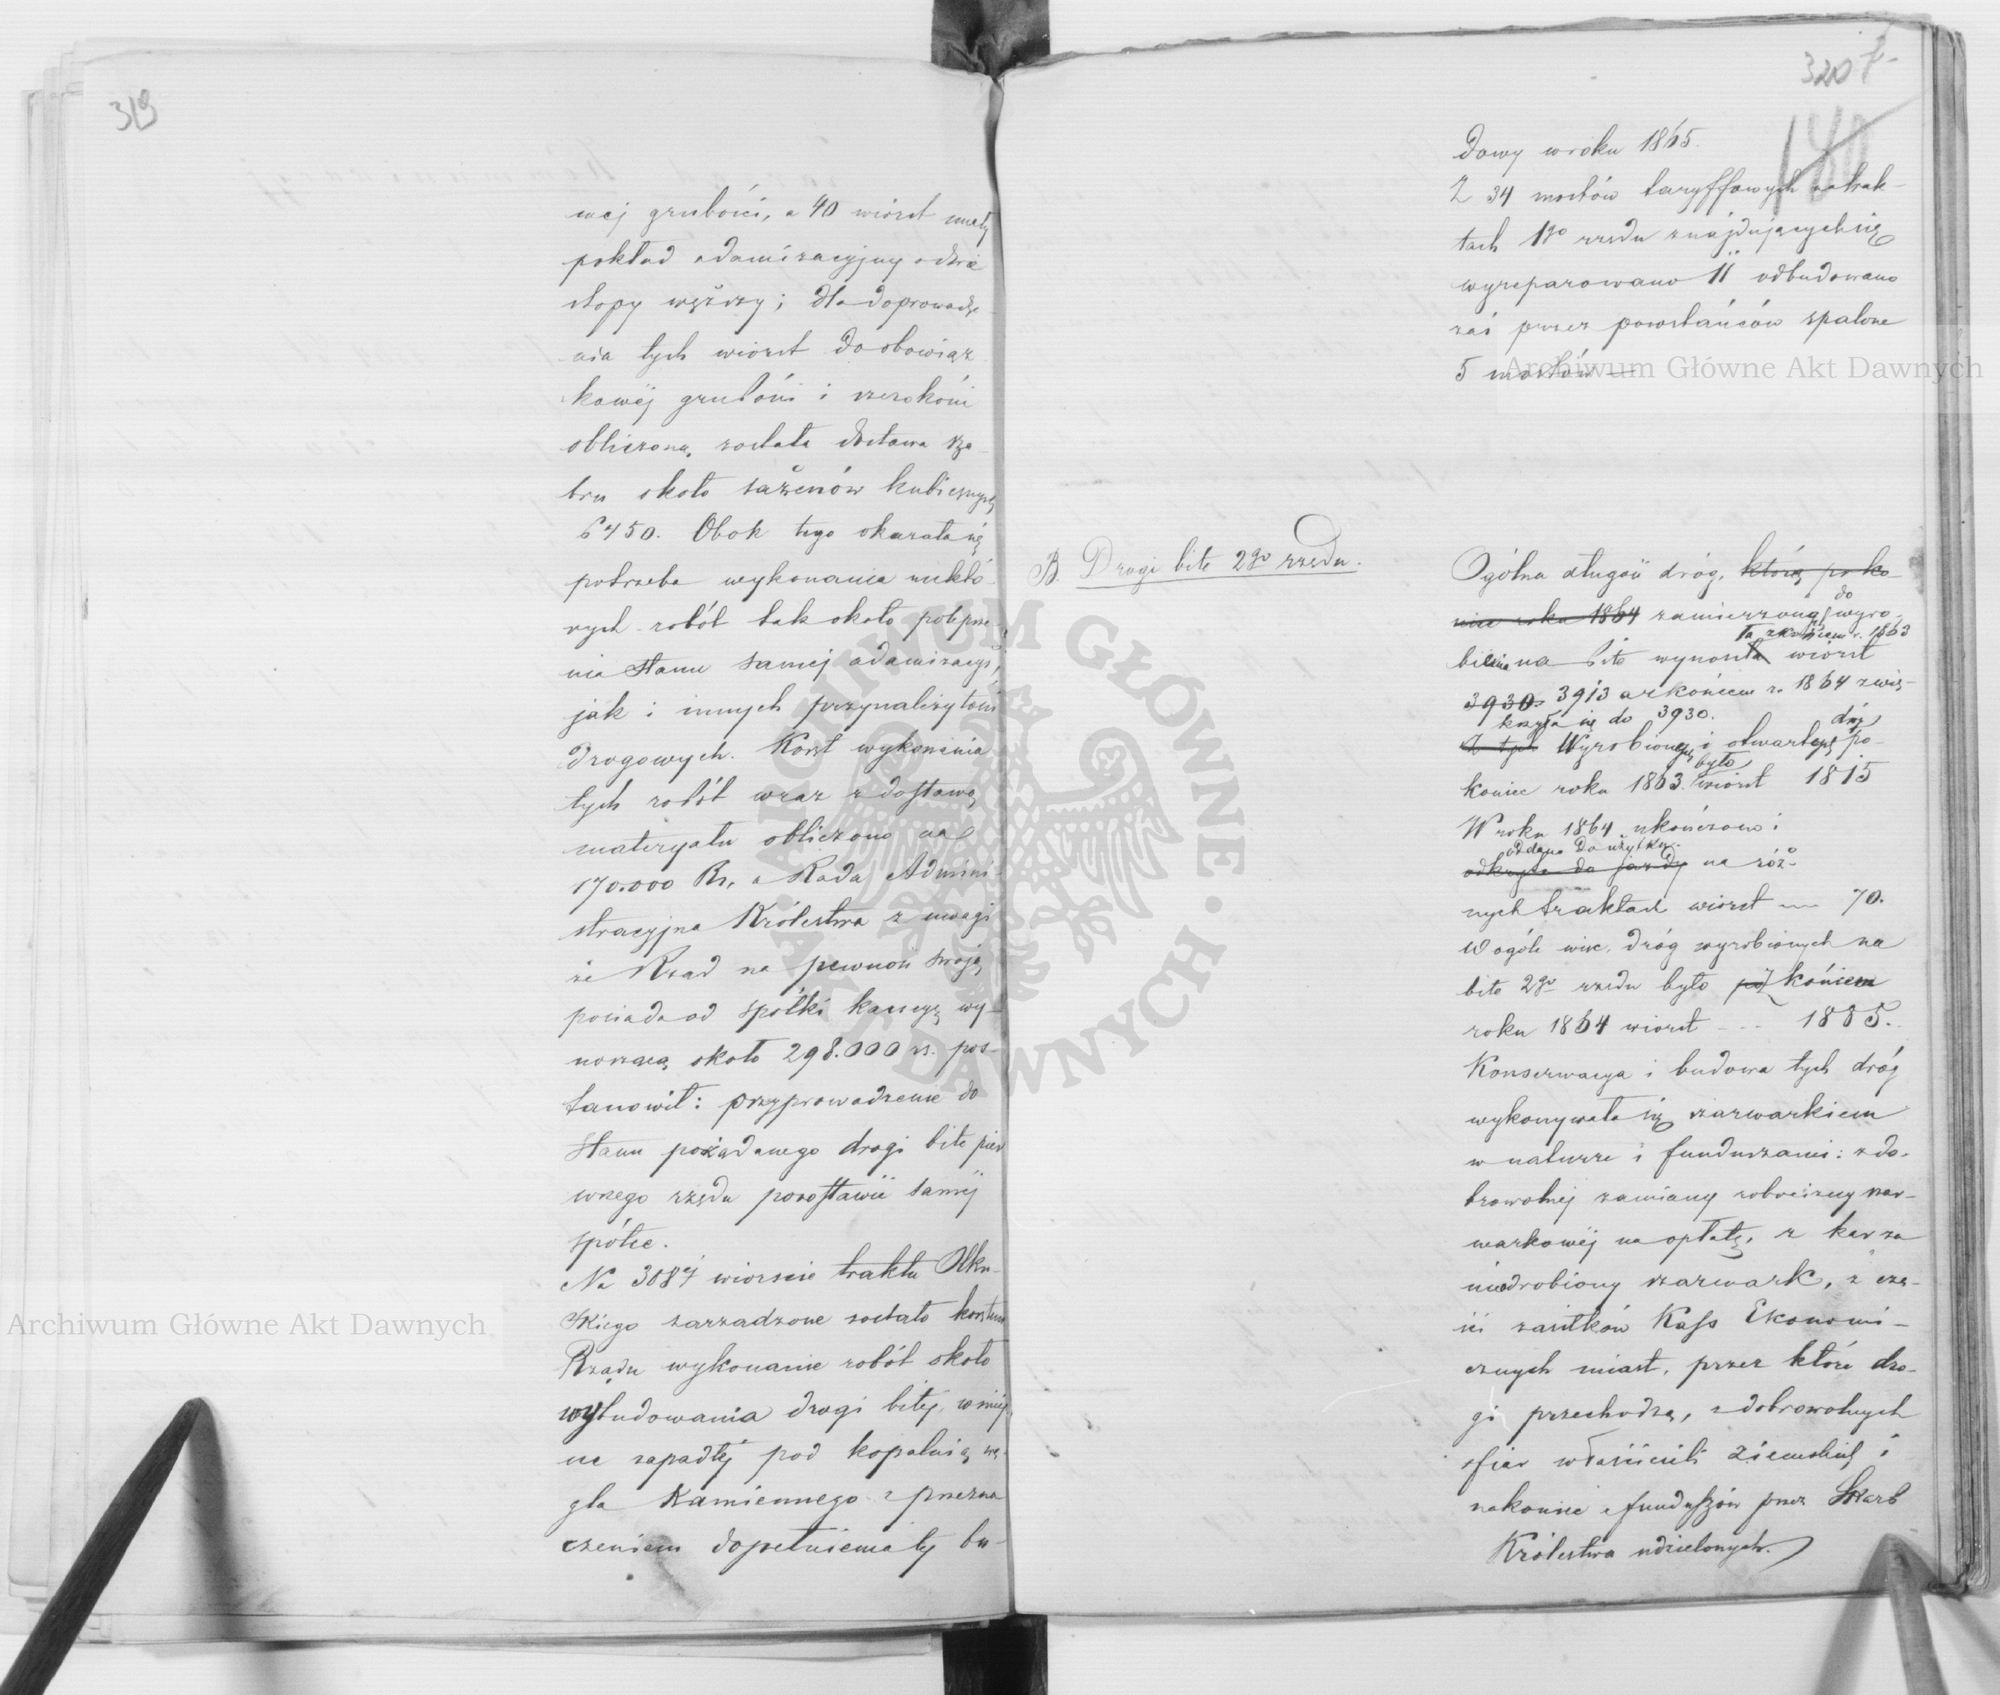 319
wej grubości, a 40 wiorst miały
pokład adamizacyjny o dwie
stopy węższy; dla doprowadze-
nia tych wiorst do obowiąz-
kowéj grubości i szerokości
obliczoną została dostawa sza-
bru około sażenów kubicznych
6450. Obok tego okazała się
potrzeba wykonania niektó-
rych robót tak około polepsze-
nia stanu samej adamizacyi,
jak i innych przynależytości
drogowych. Koszt wykonania
tych robót wraz z dostawą
materyału obliczono na
170.000 Rs, a Rada Admini-
stracyjna Królestwa z uwagi
że Rząd na pewność swoją
posiada od spółki kaucyę wy-
noszącą około 298.000 rs. pos-
tanowił: przyprowadzenie do
stanu pożądanego drogi bite pier
wszego rzędu pozostawić samej
spółce.
Na 3087 wiorście traktu Olku-
skiego zarządzone zostało kosztem
Rządu wykonanie robót około
wybudowania drogi bitej, w miejs
ce zapadłej pod kopalnią wę-
gla Kamiennego z przezna
czeniem dopełnienia tej bu-
320
140
dowy w roku 1865.
Z 34 mostów taryffowych na trak-
tach 1go rzędu znajdujących się
wyreparowano 11 odbudowano
zaś przez powstańców spalone
5 mostów —
B. Drogi bite 2go rzędu.
Ogólna długość dróg, którą po ko-
niec roku 1864 zamierzono do wyro-
ta z końcem r. 1863
bienia na bite wynosiła wiorst
3930. 3913 a z końcem r. 1864 zwię-
kszyła się do 3930.
Z tych Wyrobionych i otwartych dróg po
koniec roku 1863. było wiorst 1815
W roku 1864 ukończono i
oddano do użytku
odkryto do jazdy na róż-
nych traktach wiorst — 70.
W ogóle więc dróg wyrobionych na
bite 2go rzędu było pod końcem
roku 1864 wiorst - - - 1885.
Konserwacya i budowa tych dróg
wykonywała się szarwarkiem
w naturze i funduszami: z do-
browolnej zamiany robocizny szar-
warkowéj na opłatę, z kar za
nieodrobiony szarwark, z czę-
ści zasiłków Kass Ekonomi-
cznych miast, przez które dro-
gi przechodzą, z dobrowolnych
ofiar właścicieli ziemskich i
nakoniec z funduszów przez Skarb
Królestwa udzielonych.
Archiwum Główne Akt Dawnych
Archiwum Główne Akt Dawnych
ARCHIWUM GŁÓWNE · AKT DAWNYCH ·